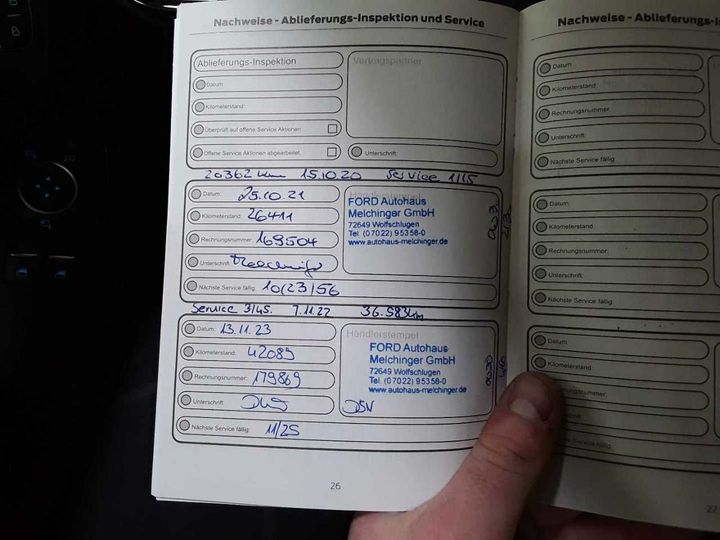 Nachweise - Ablieferungs-Inspektion und Service
Ablieferungs-Inspektion
Vertragspartner
Datum:
Kilometerstand:
Überprüft auf offene Service Aktionen:
Offene Service Aktionen abgearbeitet:
Unterschrift:
20362 km 15.10.20 Service 1/15
Datum: 25.10.21
Händlerstempel
Kilometerstand: 26411
FORD Autohaus
Melchinger GmbH
72649 Wolfschlugen
Tel. (07022) 95358-0
www.autohaus-melchinger.de
Rechnungsnummer: 169504
Unterschrift:
Nächste Service fällig: 10/23/56
Service 3/45. 7.11.22 36.583km
Datum: 13.11.23
Händlerstempel
Kilometerstand: 42089
FORD Autohaus
Melchinger GmbH
72649 Wolfschlugen
Tel. (07022) 95358-0
www.autohaus-melchinger.de
Rechnungsnummer: 179869
Unterschrift:
Nächste Service fällig: 11/25
26
Nachweise - Ablieferungs-
Datum:
Kilometerstand:
Rechnungsnummer:
Unterschrift:
Nächste Service fällig:
Datum:
Kilometerstand:
Rechnungsnummer:
Unterschrift:
Nächste Service fällig:
Datum:
Kilometerstand:
Unterschrift:
Nächste Service fällig:
27